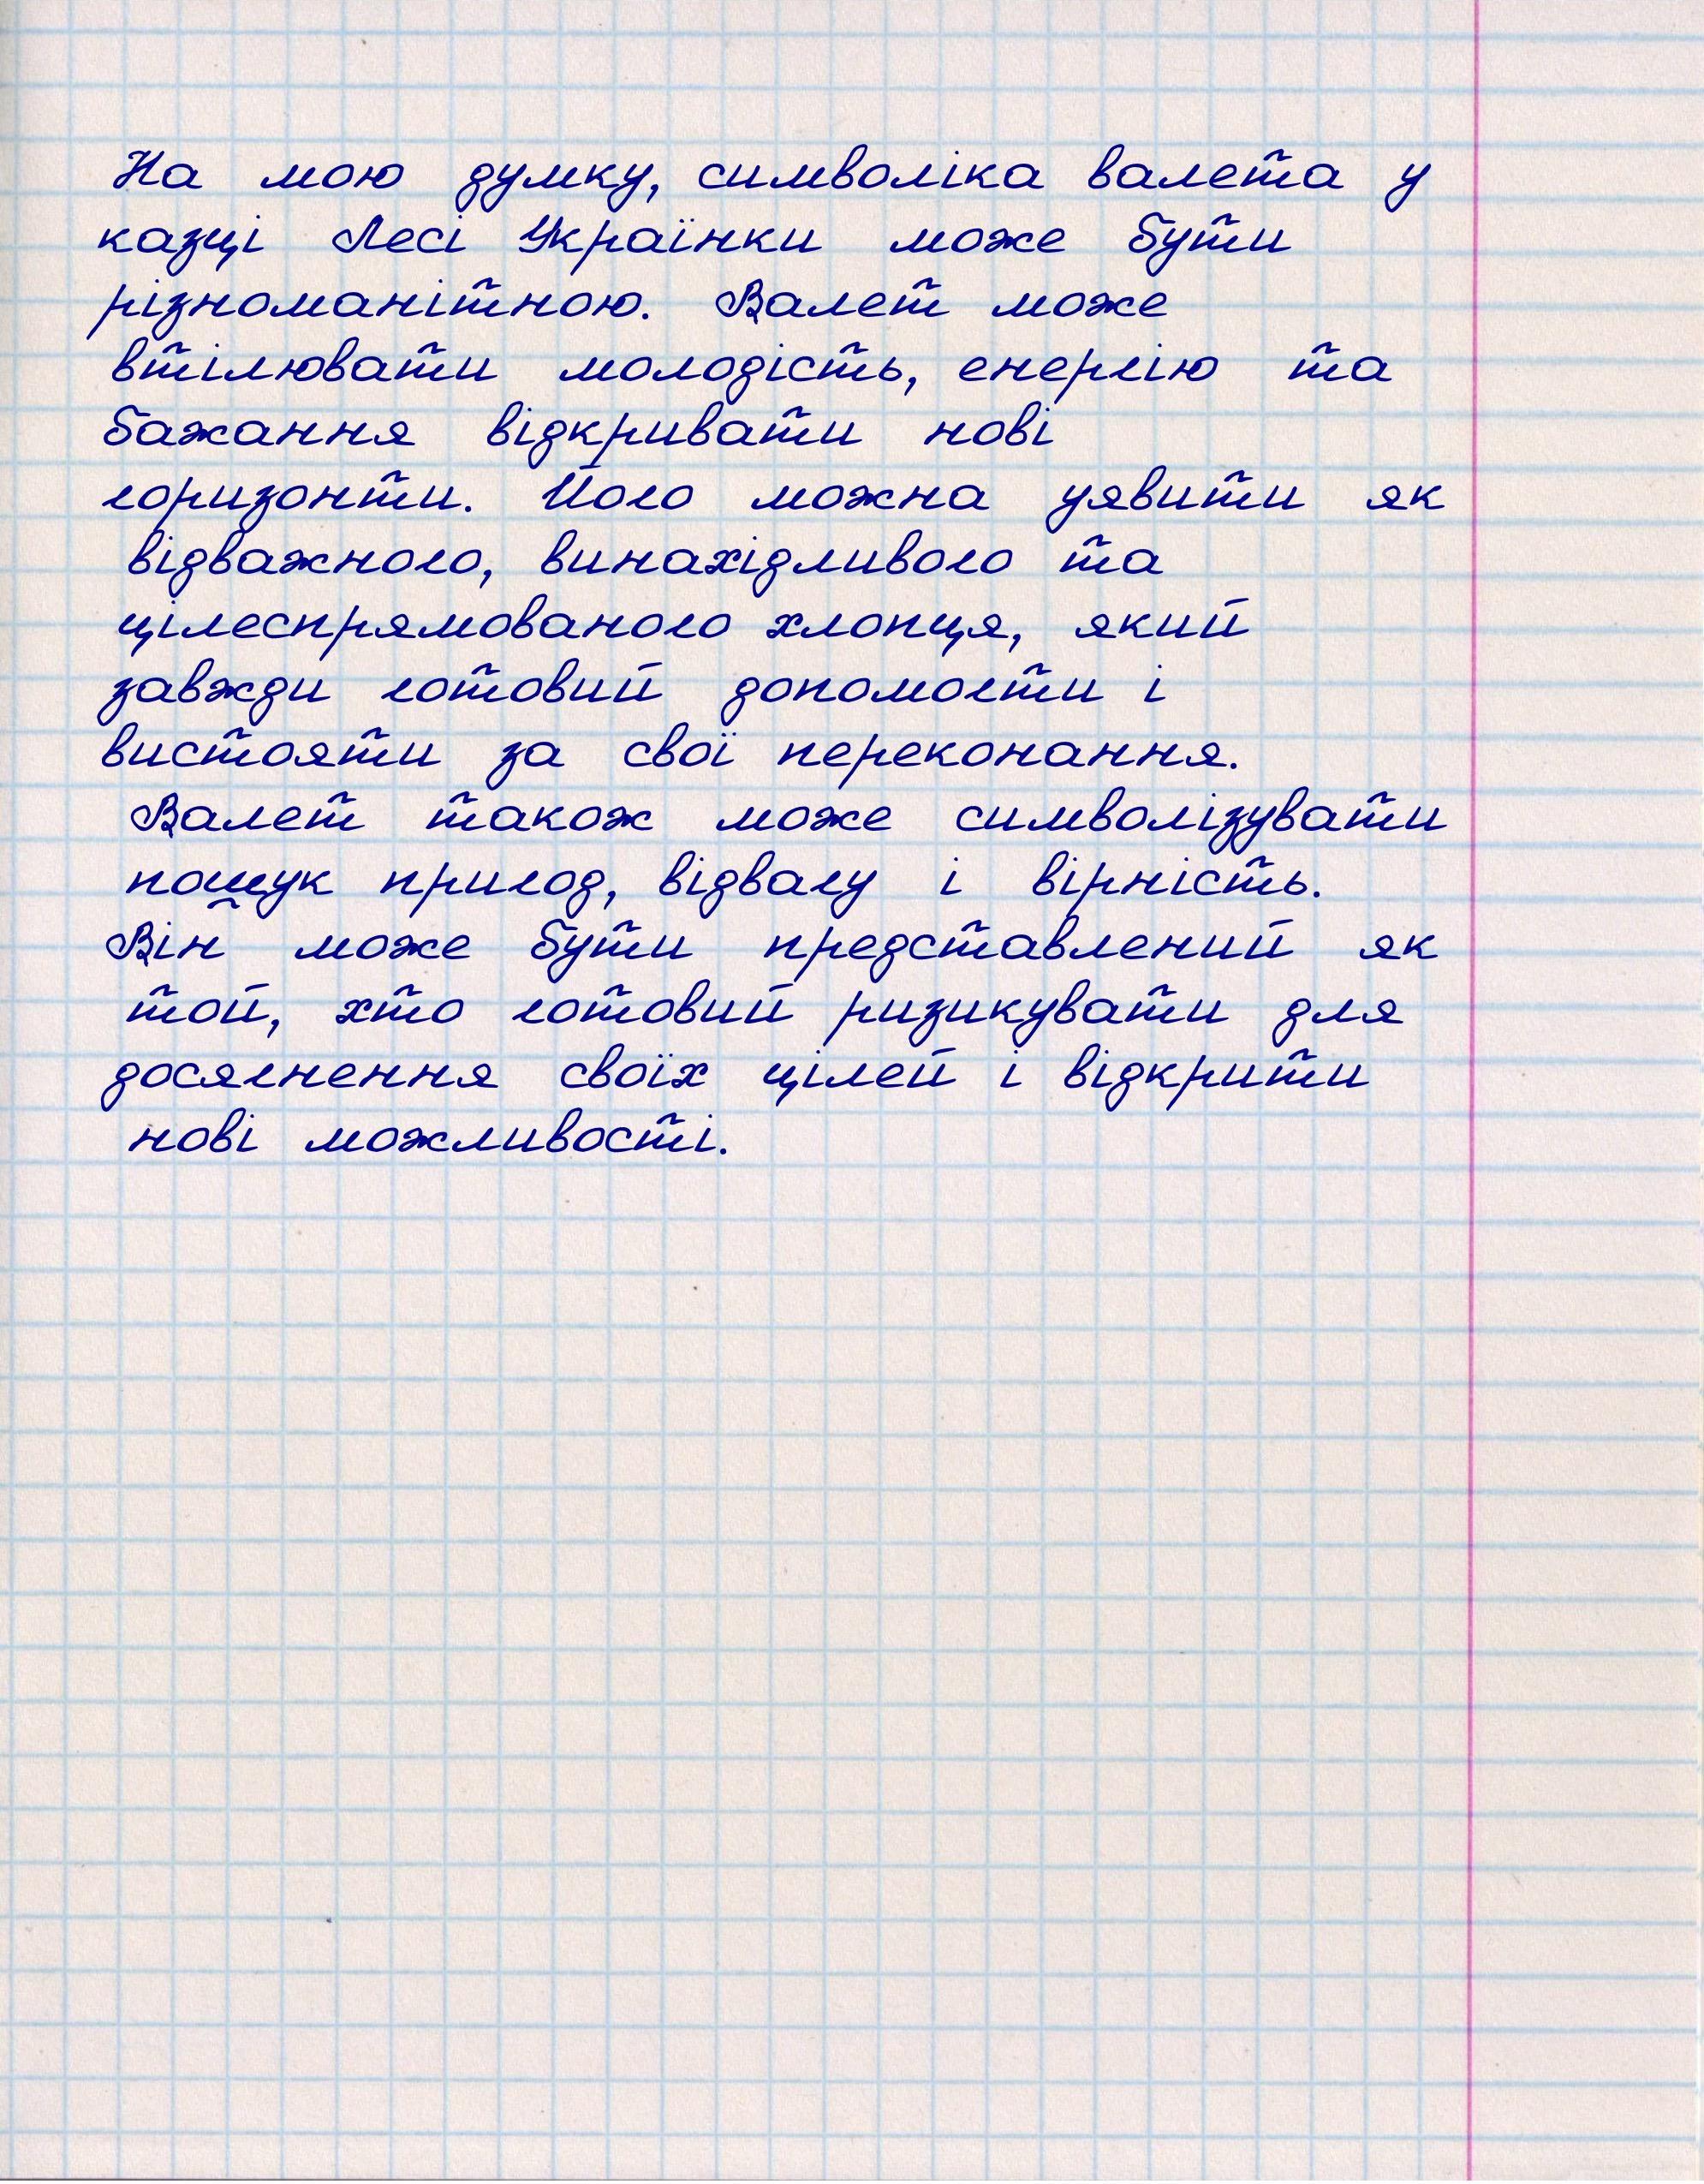 На мою думку, символіка валета у
казці Лесі Українки може бути
різноманітною. Валет може
втілювати молодість, енергію та
бажання відкривати нові
горизонти. Його можна уявити як
відважного, винахідливого та
цілеспрямованого хлопця, який
завжди готовий допомогти і
вистояти за свої переконання.
Валет також може символізувати
пошук пригод, відвагу і вірність.
Він може бути представлений як
той, хто готовий ризикувати для
досягнення своїх цілей і відкрити
нові можливості.